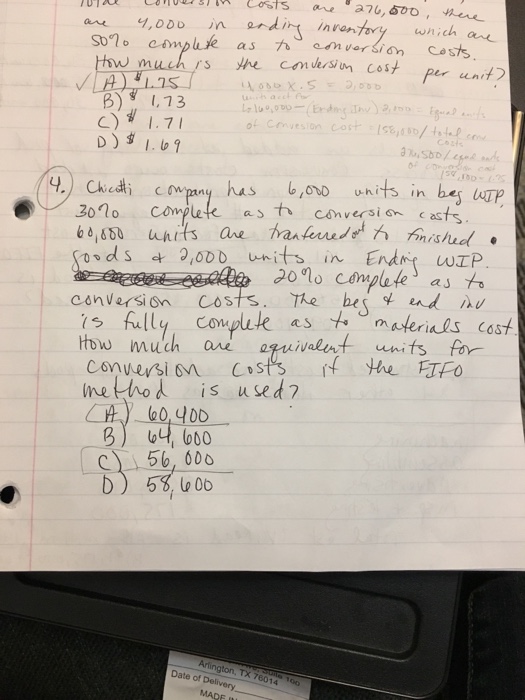 Costs are 276,500, there
are 4,000 in ending inventory which are
50% complete as to conversion costs.
How much is the conversion cost per unit?
A) $1.75
B) $1.73
C) $1.71
D) $1.69
4,000 x .5 = 2,000
4. Chicotti company has 6,000 units in beg WIP,
30% complete as to conversion costs.
60,000 units are tranferred out to finished
goods & 2,000 units in Ending WIP.
20% complete as to
conversion costs. The beg & end inv
is fully complete as to materials cost.
How much are equivalent units for
conversion costs if the FIFO
method is used?
A) 60,400
B) 64,600
C) 56,000
D) 58,600
Arlington, TX 76014
Date of Delivery
MADE